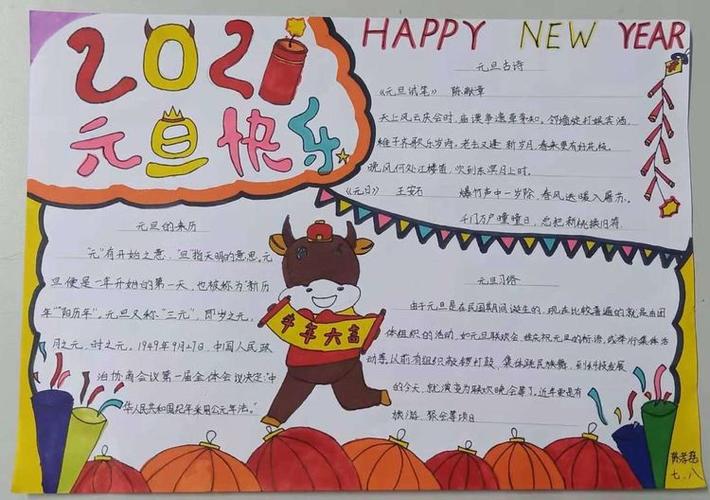 2021
元旦快乐
HAPPY NEW YEAR
元旦古诗
《元旦试笔》 陈献章
天上风云庆会时,庙谟争遣草茅知。邻墙旋打娱宾酒,
稚子齐歌乐岁诗。老去又逢新岁月,春来更有好花枝。
晚风何处江楼笛,吹到东溟月上时。
《元日》 王安石 爆竹声中一岁除,春风送暖入屠苏。
千门万户曈曈日,总把新桃换旧符。
元旦的来历
"元"有开始之意,"旦"指天明的意思。元
旦便是一年开始的第一天,也被称为"新历
年""阳历年"。元旦又称"三元",即岁之元,
月之元,时之元。1949年9月27日,中国人民政
治协商会议第一届全体会议决定:"中
华人民共和国纪年采用公元年法。"
牛年大富
元旦习俗
由于元旦是在民国期间诞生的,现在比较普遍的就是由团
体组织的活动,如元旦联欢会,挂庆祝元旦的标语,或举行集体活
动等,以前有组织敲锣打鼓,集体跳民族舞,到科技发展
的今天,就演变为联欢晚会等了。近年更是有
旅游,聚会等项目
七.八